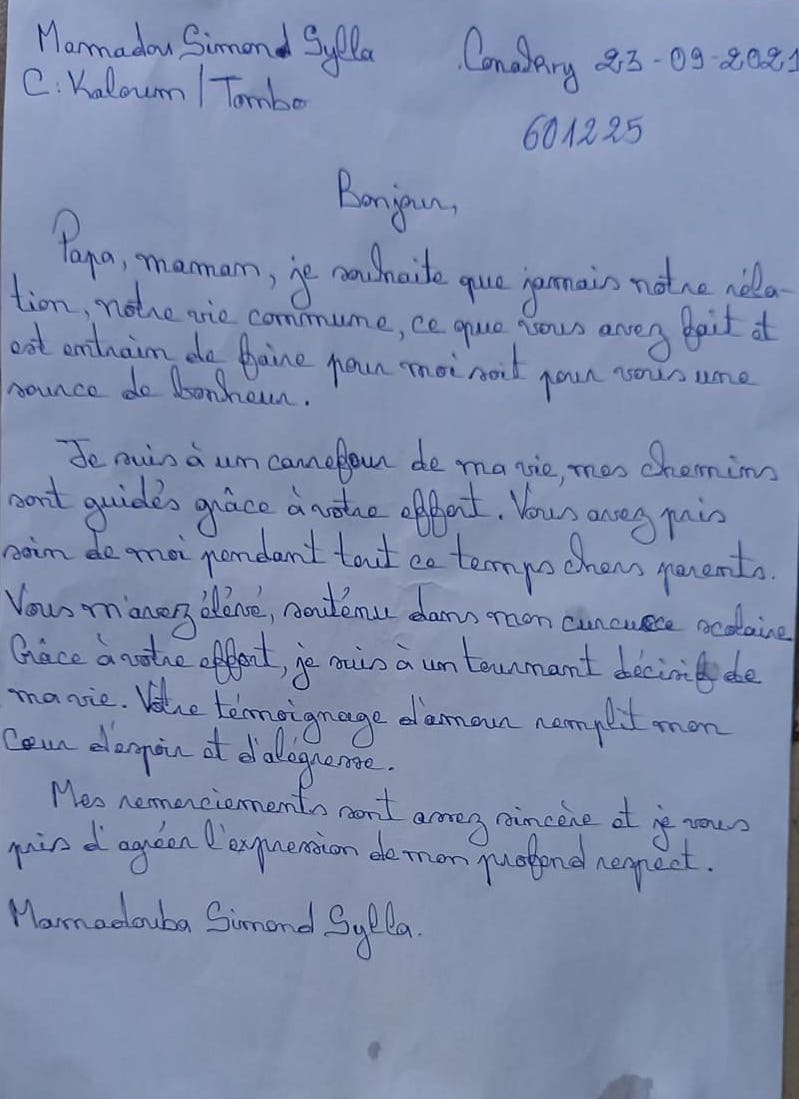 Mamadou Simond Sylla
Conakry 23-09-2021
C: Kaloum / Tombo
601225
Bonjour,
Papa, maman, je souhaite que jamais notre réla-
tion, notre vie commune, ce que vous avez fait et
est entraim de faire pour moi soit pour vous une
source de bonheur.
Je suis à un carrefour de ma vie, mes chemins
sont guidés grâce à votre effort. Vous avez pris
soin de moi pendant tout ce temps chers parents.
Vous m'avez élévé, souténu dans mon scolaire
Grâce à votre effort, je suis à un tournant décisif de
ma vie. Votre témoignage d'amour remplit mon
Cœur d'espoir et d'alégresse.
Mes remerciements sont assez sincère et je vous
pris d'agréer l'expression de mon profond respect.
Mamadouba Simond Sylla.